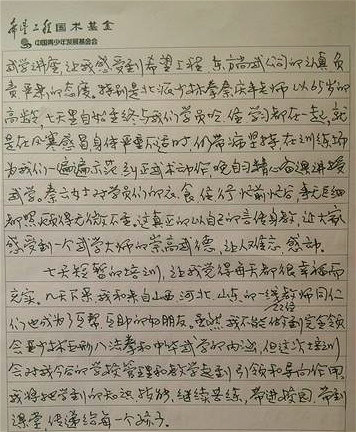 希望工程国术基金
中国青少年发展基金会
武学讲座，让我感受到希望工程、东方尚武公司的认真负
责严谨的态度。特别是北派少林拳秦庆丰老师以65岁的
高龄，七天里自始至终与我们学员吃住学习都在一起，就
是在风寒感冒身体严重不适时，仍带病坚持在训练场
为我们一遍遍示范纠正武术动作，晚自习精心备课讲授
武学。秦老师对学员们的衣、食、住、行忙前忙后，事无巨细
都照顾得无微不至。这真正的以自己的言传身教，让大家
感受到一个武学大师的崇高武德，让人难忘、感动。
七天短暂的培训，让我觉得每天都很幸福而
充实。几天下来我和来自山西、河北、山东的一线教师同仁
们也成为了互帮互助的好朋友。虽然我不能做到完全领
会少林五形八法拳和中华武学的内涵，但这次培训
会对我今后的学校管理和教学起到引领和导向作用。
我将把学到的知识、技能，继续苦练，带进校园、带到
课堂，传递给每一个孩子。